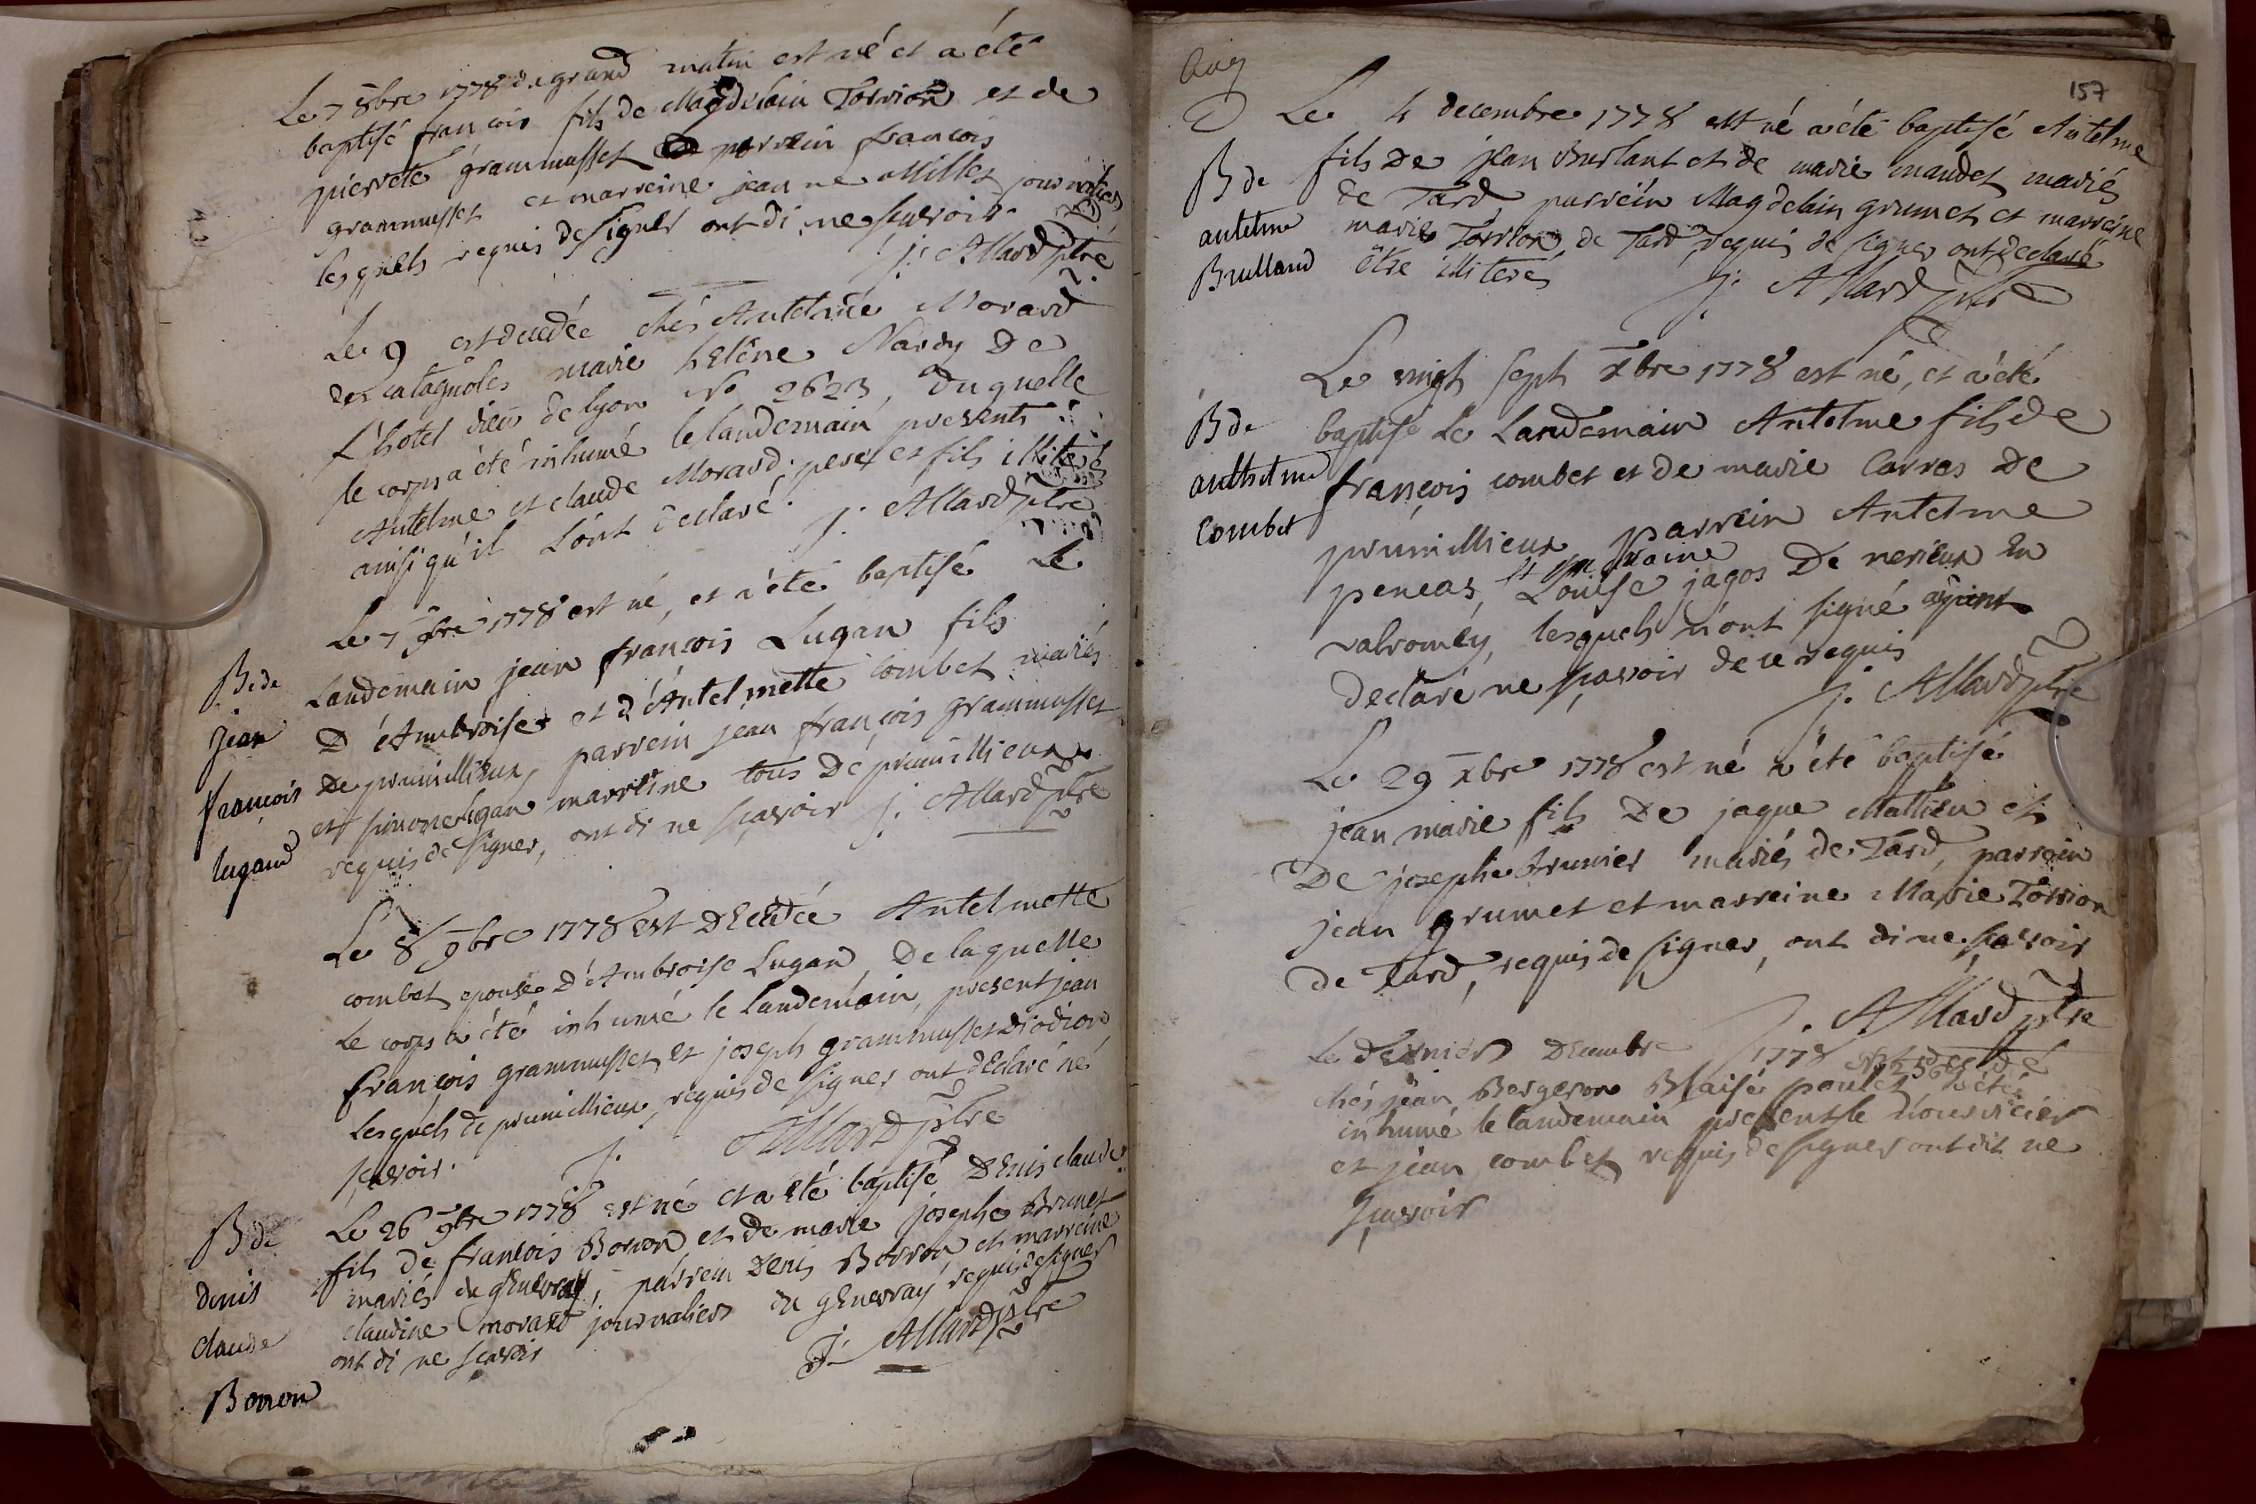 Le 7 8bre 1778 du grand matin est né et a été
baptisé françois fils de Magdelain Torrion et de
pierrete grammusset parrein francois
grammusset et marreine jeanne Millet journaliers
lesquels requis de signer ont di ne scavoir
j: Allard ptre
Le 9 est decedée chés Antelme Morard
des catagnoles marie helêne Nardy De
l'hotel dieu de lyon No 2623, Du quelle
le corps a été inhumé le landemain presents
Antelme et claude Morard pere et fils illiterés
ainsi qu'il l'ont declaré. j. Allard ptre
Le 7 9bre 1778 est né, et a été baptisé Le
Landemain jean françois Lugan fils
D'Ambroise et d'Antelmette combet mariés
De prumillieux, parrein jean françois grammusset
et simone lugan marreine tous De prumillieux
requis de signer, ont di ne scavoir j. Allard ptre
B. de
jean
françois
lugand
Le 8 9bre 1778 est Decedée Antelmette
combet epouse D'Ambroise Lugan, De laquelle
Le corps a été inhumé le Landemain, present jean
françois grammusset et joseph grammusset Diodion
Lesquels de prumillieux, requis de signer ont declaré ne
scavoir. j. Allard ptre
B de
denis
claude
Borron
Le 26 9bre 1778 est né et a eté baptisé Denis claude
fils de francois Borron et de marie josephe Brunet
mariés du genevray, parrein Denis Borron et marreine
claudine morard journaliers du genevray requis de signer
ont di ne scavoir j. Allard ptre
157
Le 4 decembre 1778 est né a été baptisé Antelme
fils De jean Brulant et de marie mandet mariés
de Tard, parrein Magdelain grumet et marreine
marie Torrion de Tard, requis de signer ont declaré
être illiterés j. Allard ptre
B de
antelme
Brulland
Le vingt sept Xbre 1778 est né, et a été
baptisé Le Landemain Antelme fils de
françois combet et de marie Carras De
prumillieux parrein Antelme
et marraine
peneas, Louise jagos De nerieux En
valromey, lesquels n'ont signé ayant
Declaré ne scavoir de ce requis
j. Allard ptre
B de
anthelme
Combet
Le 29 Xbre 1778 est né a été baptisé
jean marie fils De jaque Mathieu et
De josephe Brunier mariés de Tard, parrein
jean grumet et marreine Marie Torrion
de Tard, requis de signer, ont di ne scavoir
j. Allard ptre
Le dernier Decembre 1778 est decedé
chés jean Bergeron Blaise poulet a été
inhumé le landemain present le
et jean combet requis de signer ont dit ne
scavoir